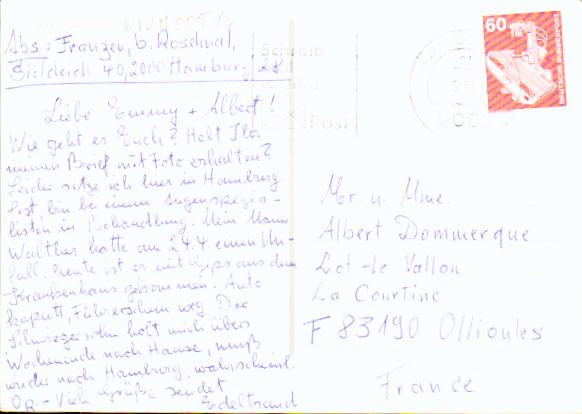 Abs: Franzen, b. Roschnal,
Sieldeich 40, 2000 Hamburg 28
Liebe Emmy + Albert!
Wie geht es Euch? Habt Ihr
meinen Brief mit Foto erhalten?
Leider sitze ich hier in Hamburg
fest, bin bei einem Augenspezia-
listen in Behandlung. Mein Mann
Walther hatte am 24.4 einen Un-
fall, heute ist er mit Gips aus dem
Krankenhaus gekommen. Auto
kaputt, Führerschein weg. Der
Schwiegersohn holt mich übers
Wochenende nach Hause, muß
wieder nach Hamburg, wahrscheinl.
OP.- Viele Grüße sendet
Edeltraud
Schreib
Post
60
DEUTSCHE BUNDESPOST
Mr. u. Mme.
Albert Dommerque
Lot-le Vallon
La Courtine
F 83190 Ollioules
France